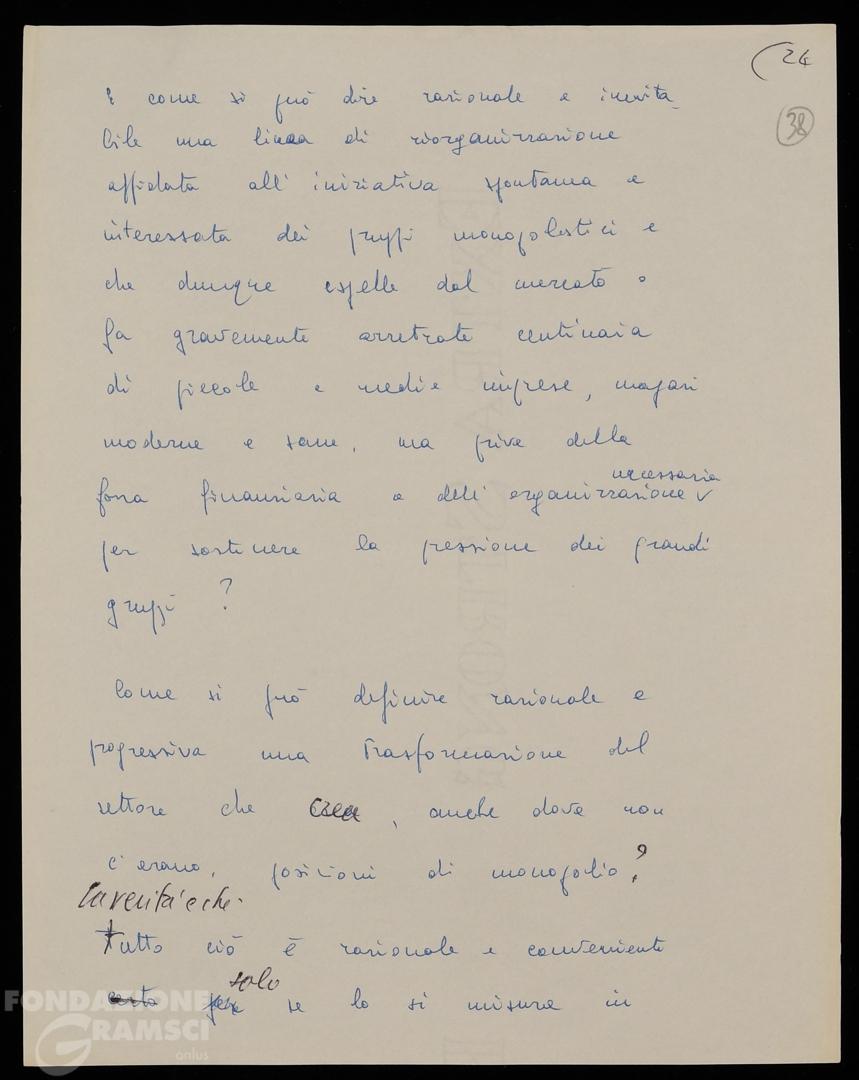 (24
38
E come si può dire razionale e inevita_
bile una linea di riorganizzazione
affidata all'iniziativa spontanea e
interessata dei gruppi monopolistici e
che dunque espelle dal mercato o
fa gravemente arretrate centinaia
di piccole e medie imprese, magari
moderne e sane, ma prive della
necessaria
forza finanziaria e dell'organizzazione ✓
per sostenere la pressione dei grandi
gruppi ?
Come si può definire razionale e
progressiva una trasformazione del
settore che crea, anche dove non
c'erano, posizioni di monopolio?
La verità è che
Tutto ciò è razionale e conveniente
solo
certo se lo si misura in
FONDAZIONE
GRAMSCI
onlus